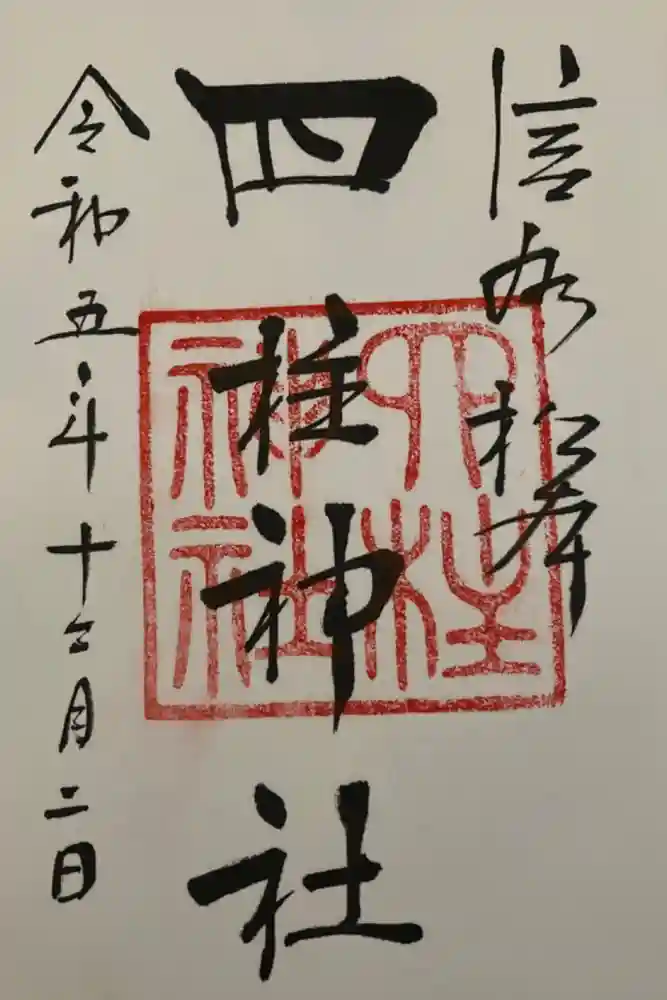 信州松本
四柱神社
四柱神社
令和五年十二月二日